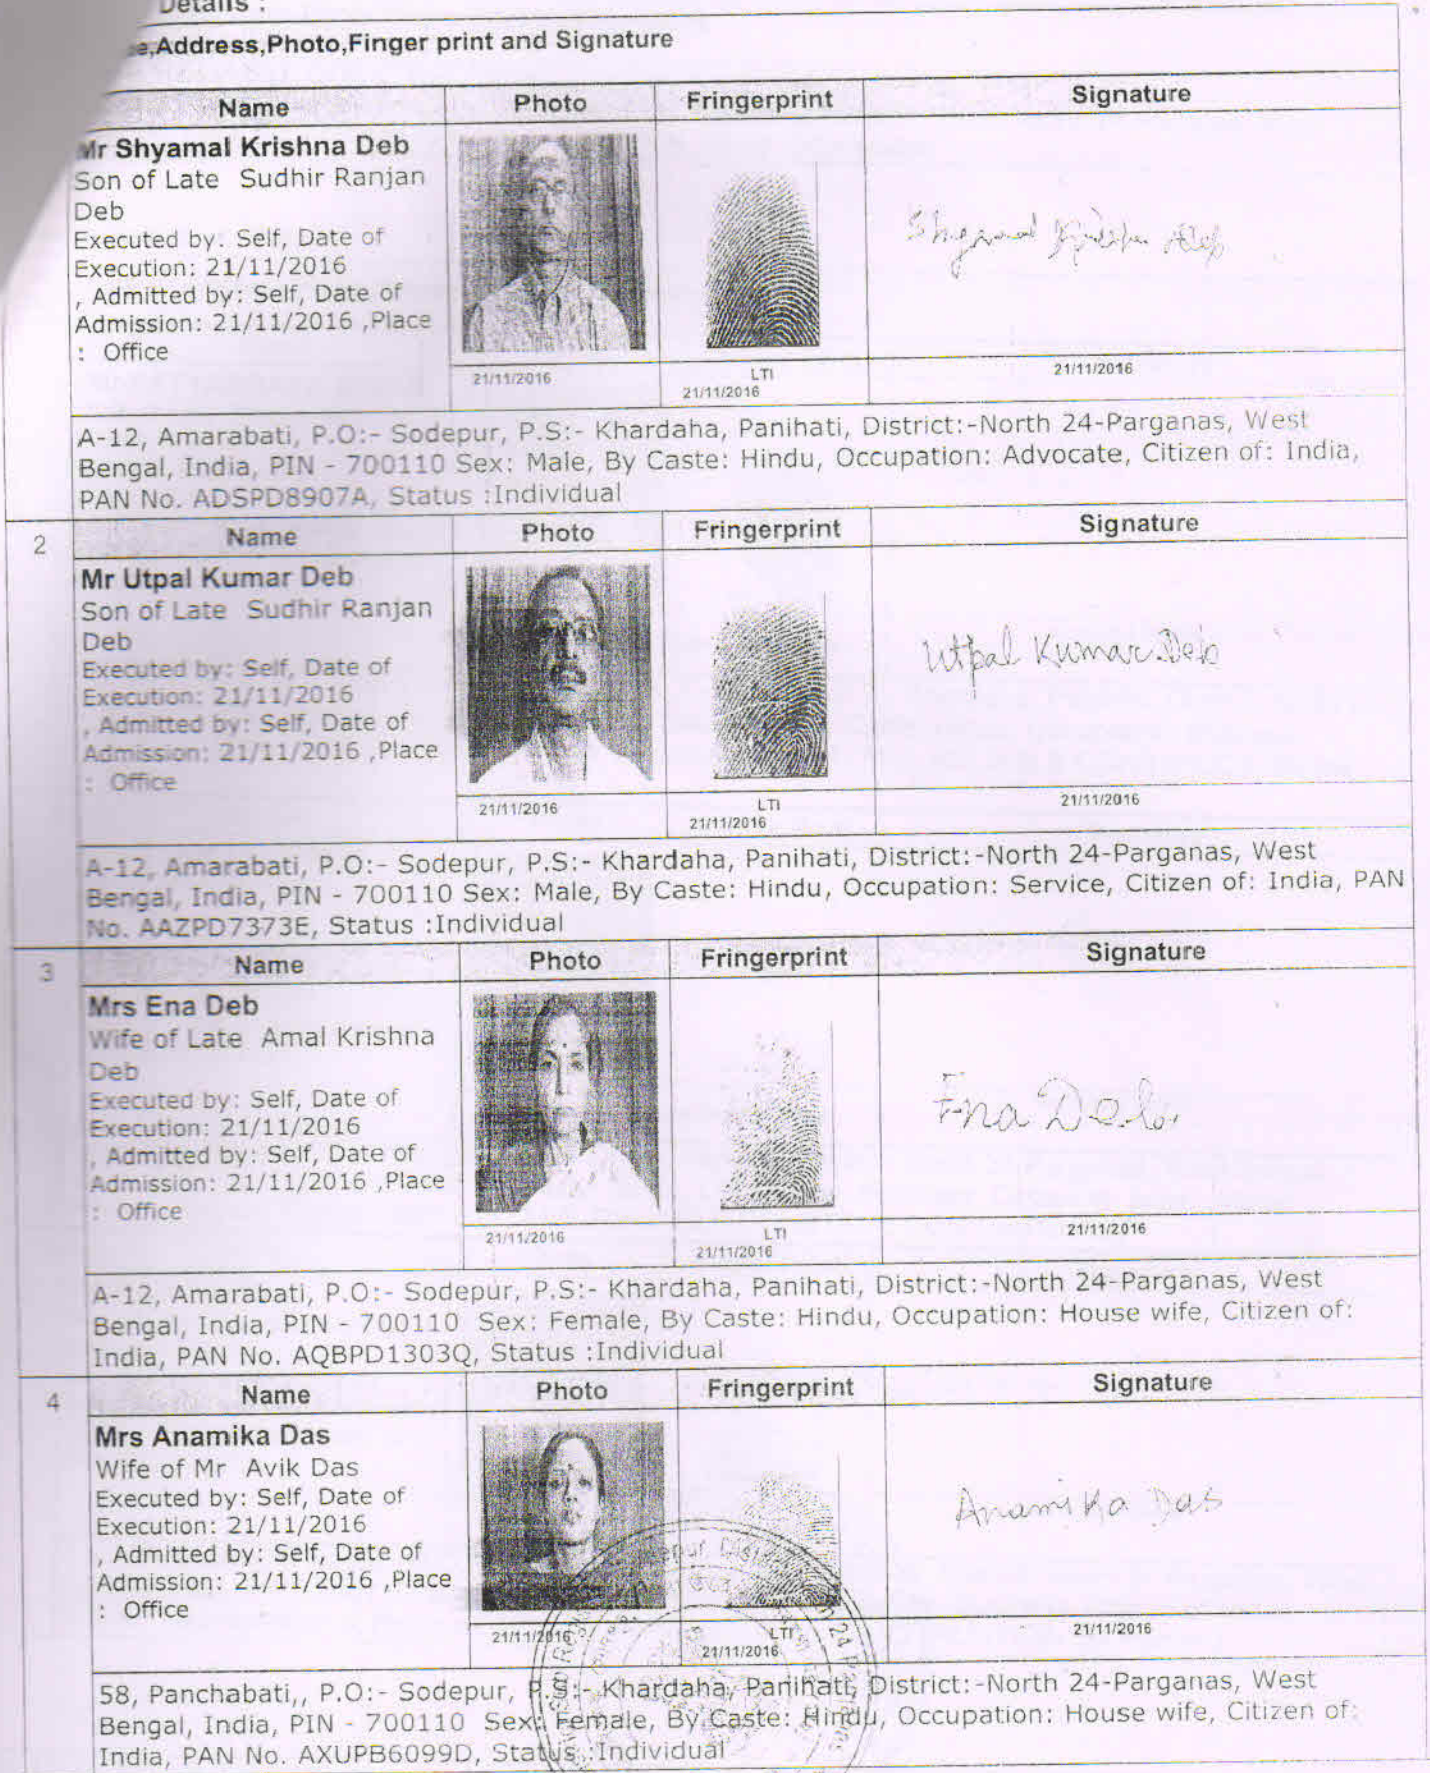 Details :
e,Address,Photo,Finger print and Signature
Name Photo Fringerprint Signature
Mr Shyamal Krishna Deb
Son of Late Sudhir Ranjan
Deb
Executed by: Self, Date of
Execution: 21/11/2016
, Admitted by: Self, Date of
Admission: 21/11/2016 ,Place
: Office
Shyamal Krishna Deb
21/11/2016 LTI 21/11/2016
21/11/2016
A-12, Amarabati, P.O:- Sodepur, P.S:- Khardaha, Panihati, District:-North 24-Parganas, West
Bengal, India, PIN - 700110 Sex: Male, By Caste: Hindu, Occupation: Advocate, Citizen of: India,
PAN No. ADSPD8907A, Status :Individual
2 Name Photo Fringerprint Signature
Mr Utpal Kumar Deb
Son of Late Sudhir Ranjan
Deb
Executed by: Self, Date of
Execution: 21/11/2016
, Admitted by: Self, Date of
Admission: 21/11/2016 ,Place
: Office
Utpal Kumar Deb
21/11/2016 LTI 21/11/2016
21/11/2016
A-12, Amarabati, P.O:- Sodepur, P.S:- Khardaha, Panihati, District:-North 24-Parganas, West
Bengal, India, PIN - 700110 Sex: Male, By Caste: Hindu, Occupation: Service, Citizen of: India, PAN
No. AAZPD7373E, Status :Individual
3 Name Photo Fringerprint Signature
Mrs Ena Deb
Wife of Late Amal Krishna
Deb
Executed by: Self, Date of
Execution: 21/11/2016
, Admitted by: Self, Date of
Admission: 21/11/2016 ,Place
: Office
Ena Deb
21/11/2016 LTI 21/11/2016
21/11/2016
A-12, Amarabati, P.O:- Sodepur, P.S:- Khardaha, Panihati, District:-North 24-Parganas, West
Bengal, India, PIN - 700110 Sex: Female, By Caste: Hindu, Occupation: House wife, Citizen of:
India, PAN No. AQBPD1303Q, Status :Individual
4 Name Photo Fringerprint Signature
Mrs Anamika Das
Wife of Mr Avik Das
Executed by: Self, Date of
Execution: 21/11/2016
, Admitted by: Self, Date of
Admission: 21/11/2016 ,Place
: Office
Anamika Das
21/11/2016 LTI 21/11/2016
21/11/2016
58, Panchabati,, P.O:- Sodepur, P.S:- Khardaha, Panihati, District:-North 24-Parganas, West
Bengal, India, PIN - 700110 Sex: Female, By Caste: Hindu, Occupation: House wife, Citizen of:
India, PAN No. AXUPB6099D, Status :Individual